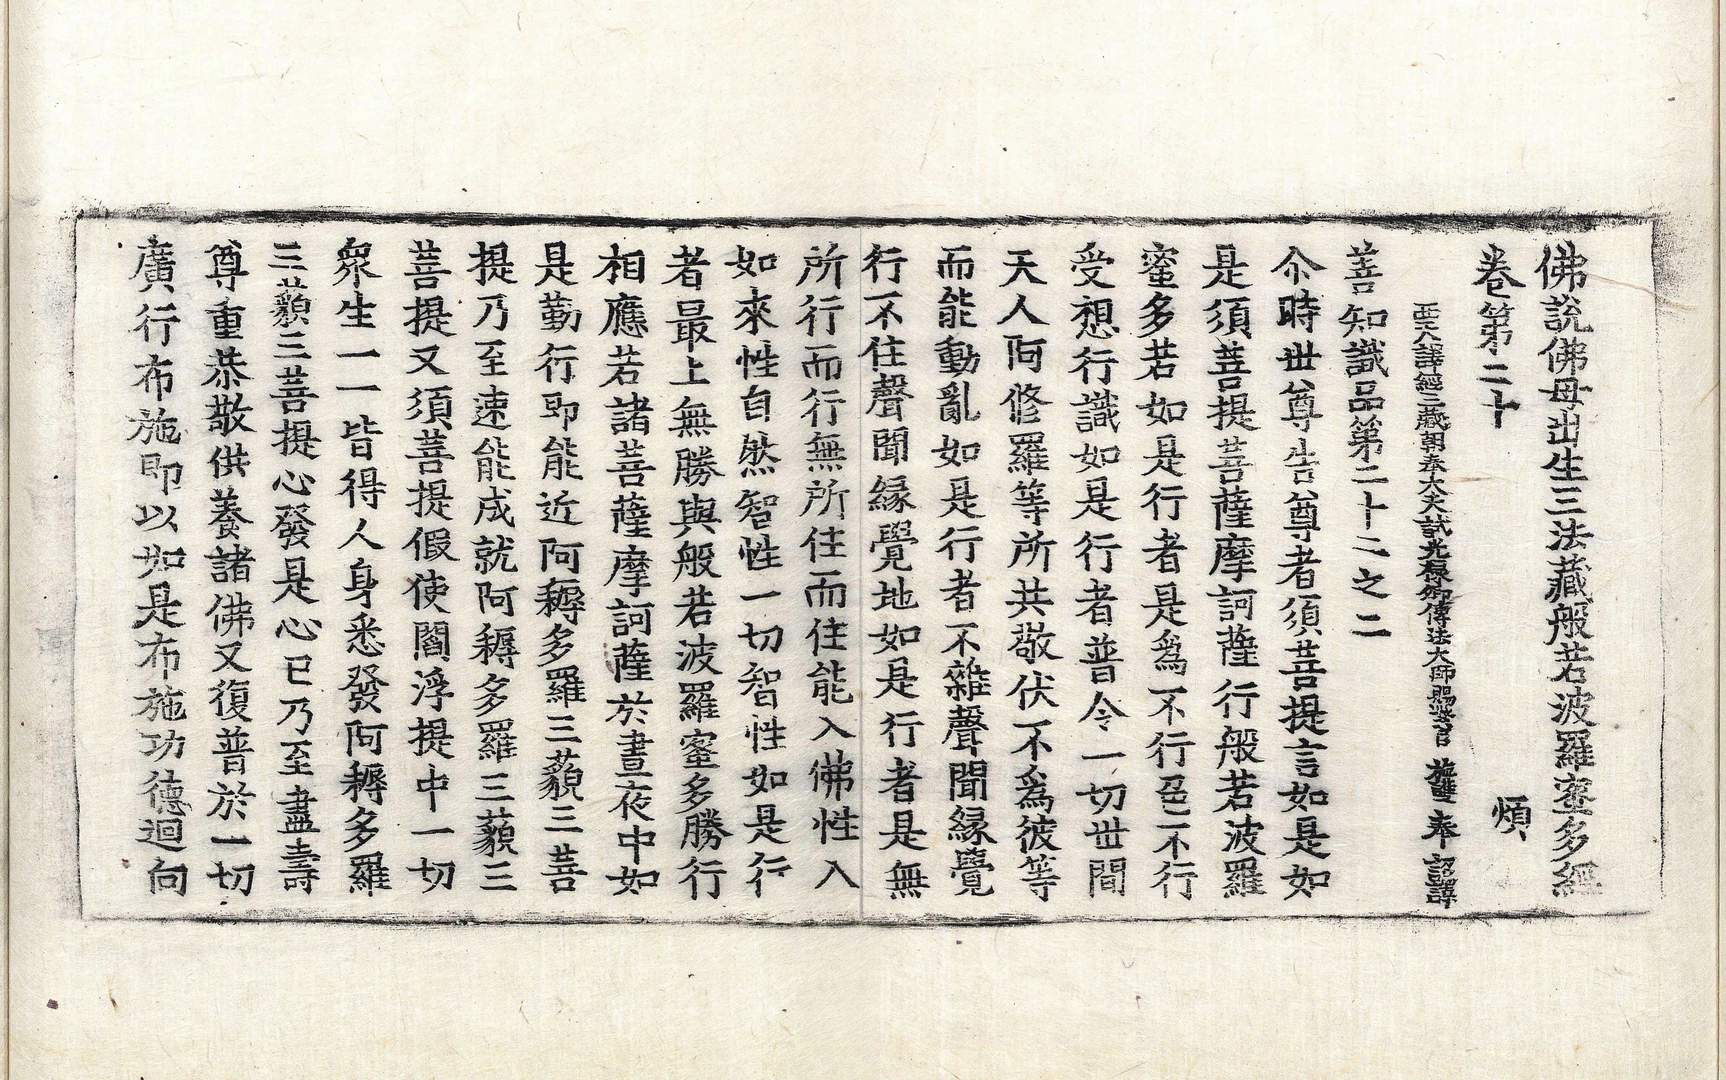 佛說佛母出生三法藏般若波羅蜜多經
卷第二十　煩
西天譯經三藏朝奉大夫試光祿卿傳法大師賜紫臣施護奉　詔譯
善知識品第二十二之二
尒時世尊告尊者須菩提言如是如
是須菩提菩薩摩訶薩行般若波羅
蜜多若如是行者是爲不行色不行
受想行識如是行者普令一切世間
天人阿修羅等所共敬伏不爲彼等
而能動亂如是行者不雜聲聞緣覺
行不住聲聞緣覺地如是行者是無
所行而行無所住而住能入佛性入
如來性自然智性一切智性如是行
者最上無勝與般若波羅蜜多勝行
相應若諸菩薩摩訶薩於晝夜中如
是勤行即能近阿耨多羅三藐三菩
提乃至速能成就阿耨多羅三藐三
菩提又須菩提假使閻浮提中一切
衆生一一皆得人身悉發阿耨多羅
三藐三菩提心發是心已乃至盡壽
尊重恭敬供養諸佛又復普於一切
廣行布施即以如是布施功德迴向